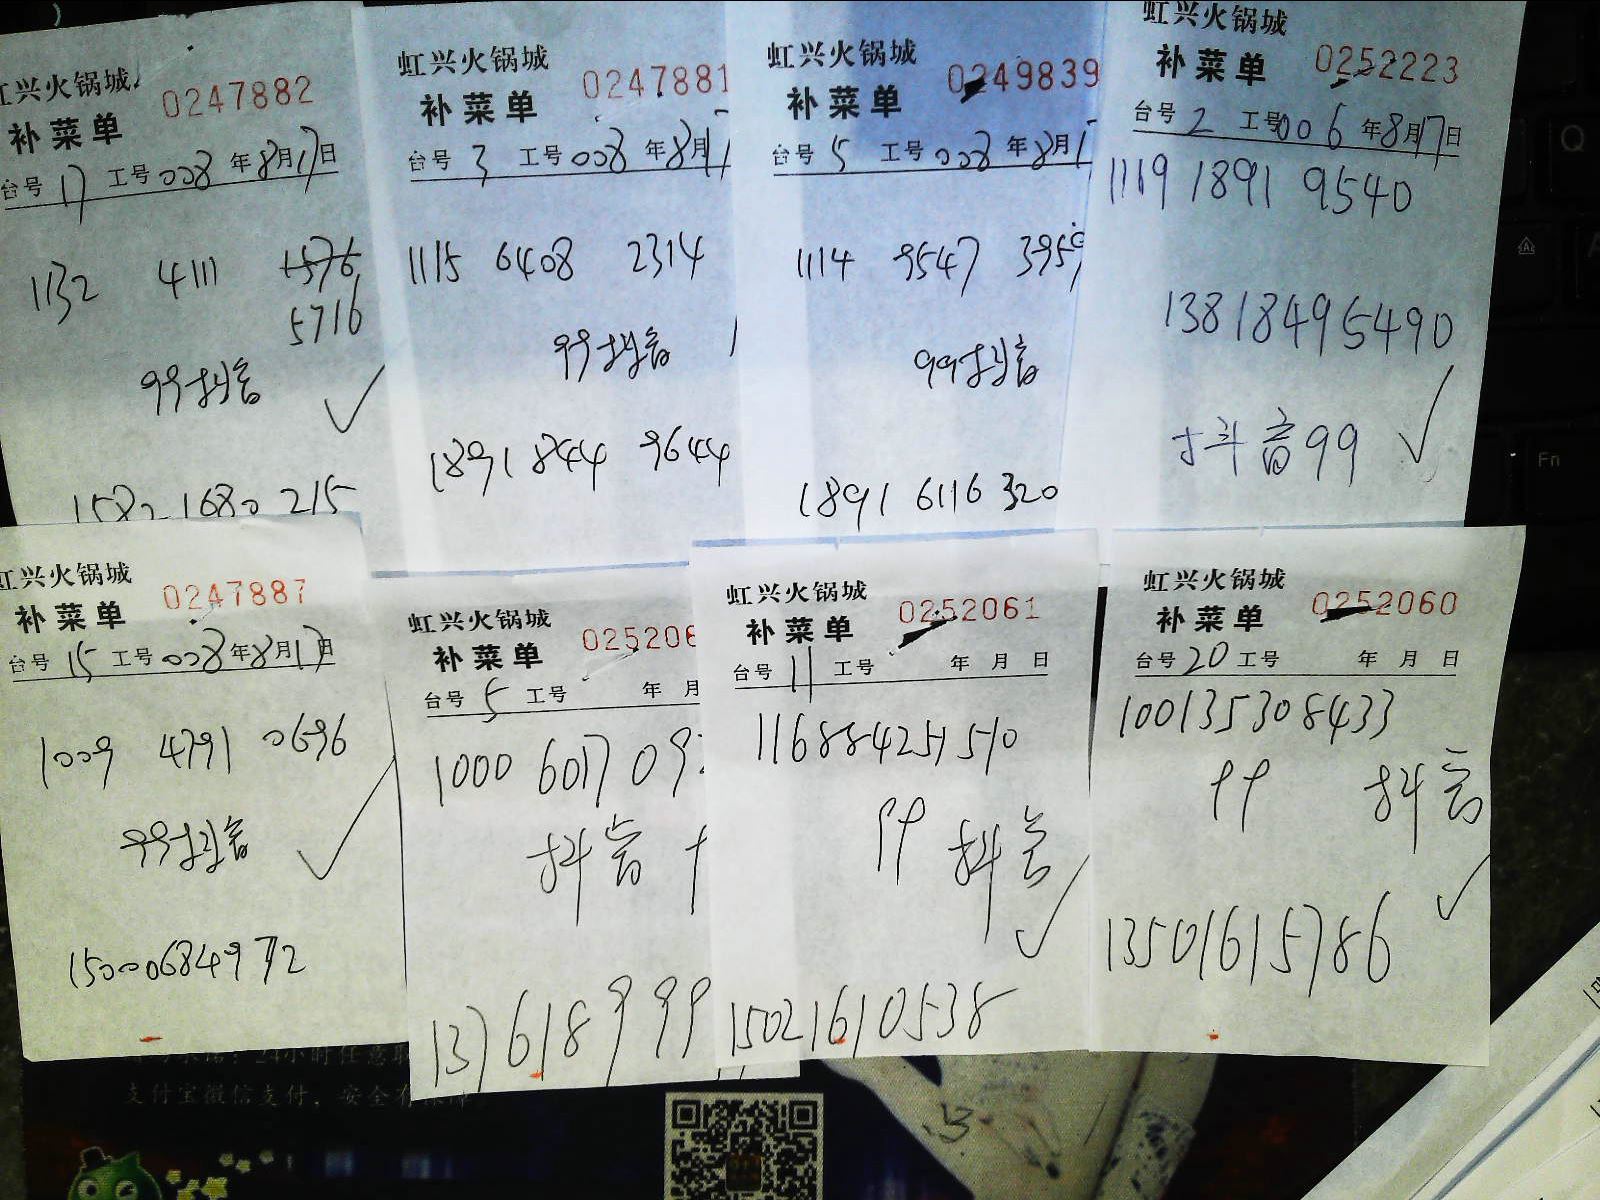 虹兴火锅城
0247882
补菜单
台号 17 工号 008 年 8月17日
1132 4111 1576
5716
99抖音
1582 1680 215
虹兴火锅城
0247881
补菜单
台号 3 工号 008 年 8月1
1115 6408 2314
99抖音
1891 844 9644
虹兴火锅城
0249839
补菜单
台号 5 工号 008 年 8月1
1114 9547 3959
99抖音
1891 6116 320
虹兴火锅城
0252223
补菜单
台号 2 工号 006 年 8月17日
1119 1891 9540
13818495490
抖音99
虹兴火锅城
0247887
补菜单
台号 15 工号 008 年 8月17日
1009 4791 0696
99抖音
15000684972
虹兴火锅城
025206
补菜单
台号 5 工号 年 月
1000 6017 09
抖音
137618999
虹兴火锅城
0252061
补菜单
台号 11 工号 年 月 日
116884251510
99 抖音
15021610538
虹兴火锅城
0252060
补菜单
台号 20 工号 年 月 日
100135308433
99 抖音
13501615786
24小时任意
支付宝微信支付，安全有保障
Q
A
Fn